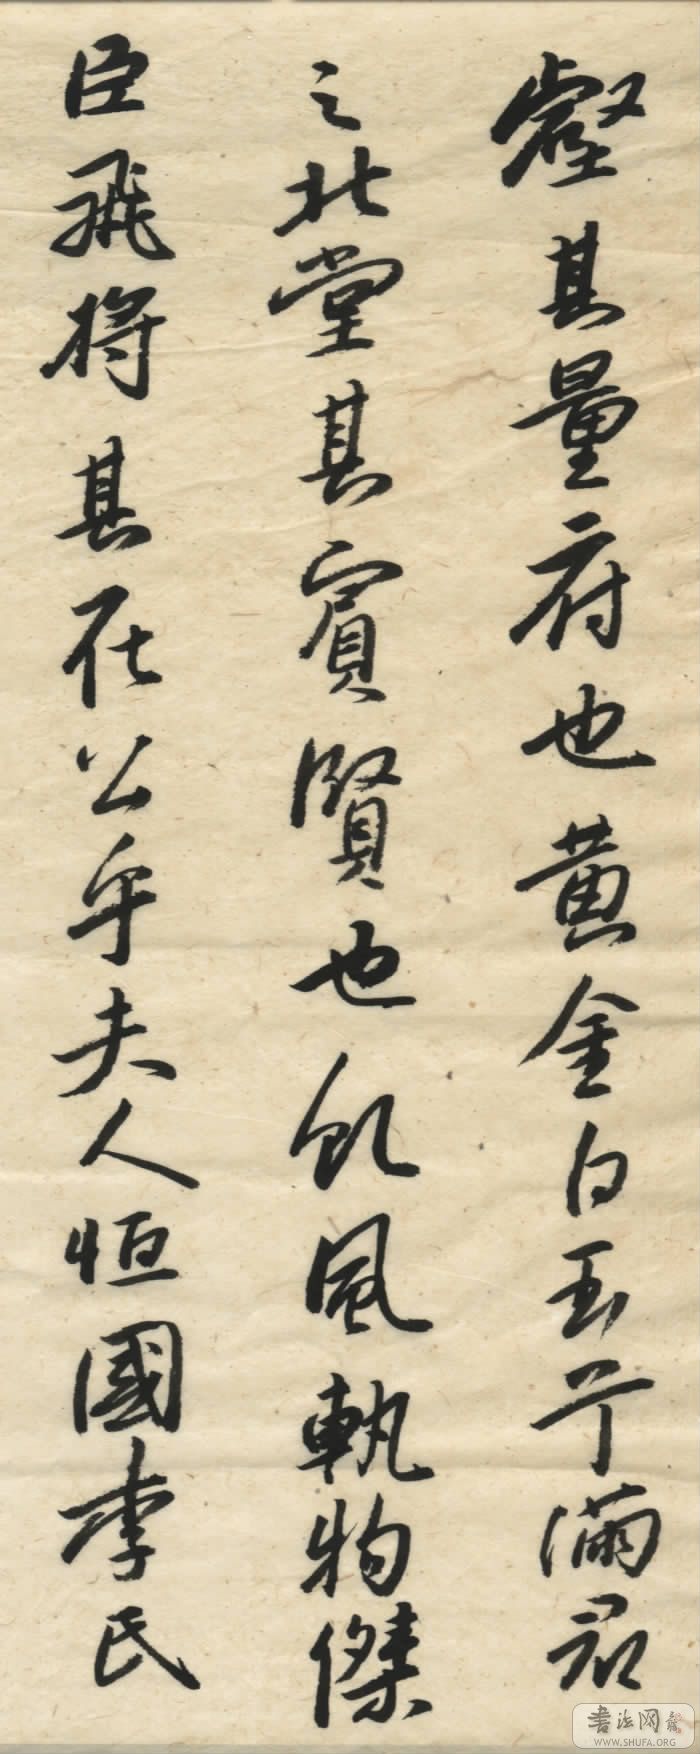 壑其量府也黄金白玉亍滿君
之北堂其賓賢也飢風執物傑
臣飛将其在公乎夫人恒國李氏
書法网
WWW.SHUFA.ORG